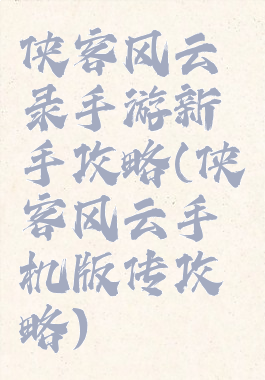 侠客风云
录手游新
手攻略(侠
客风云手
机版传攻
略)